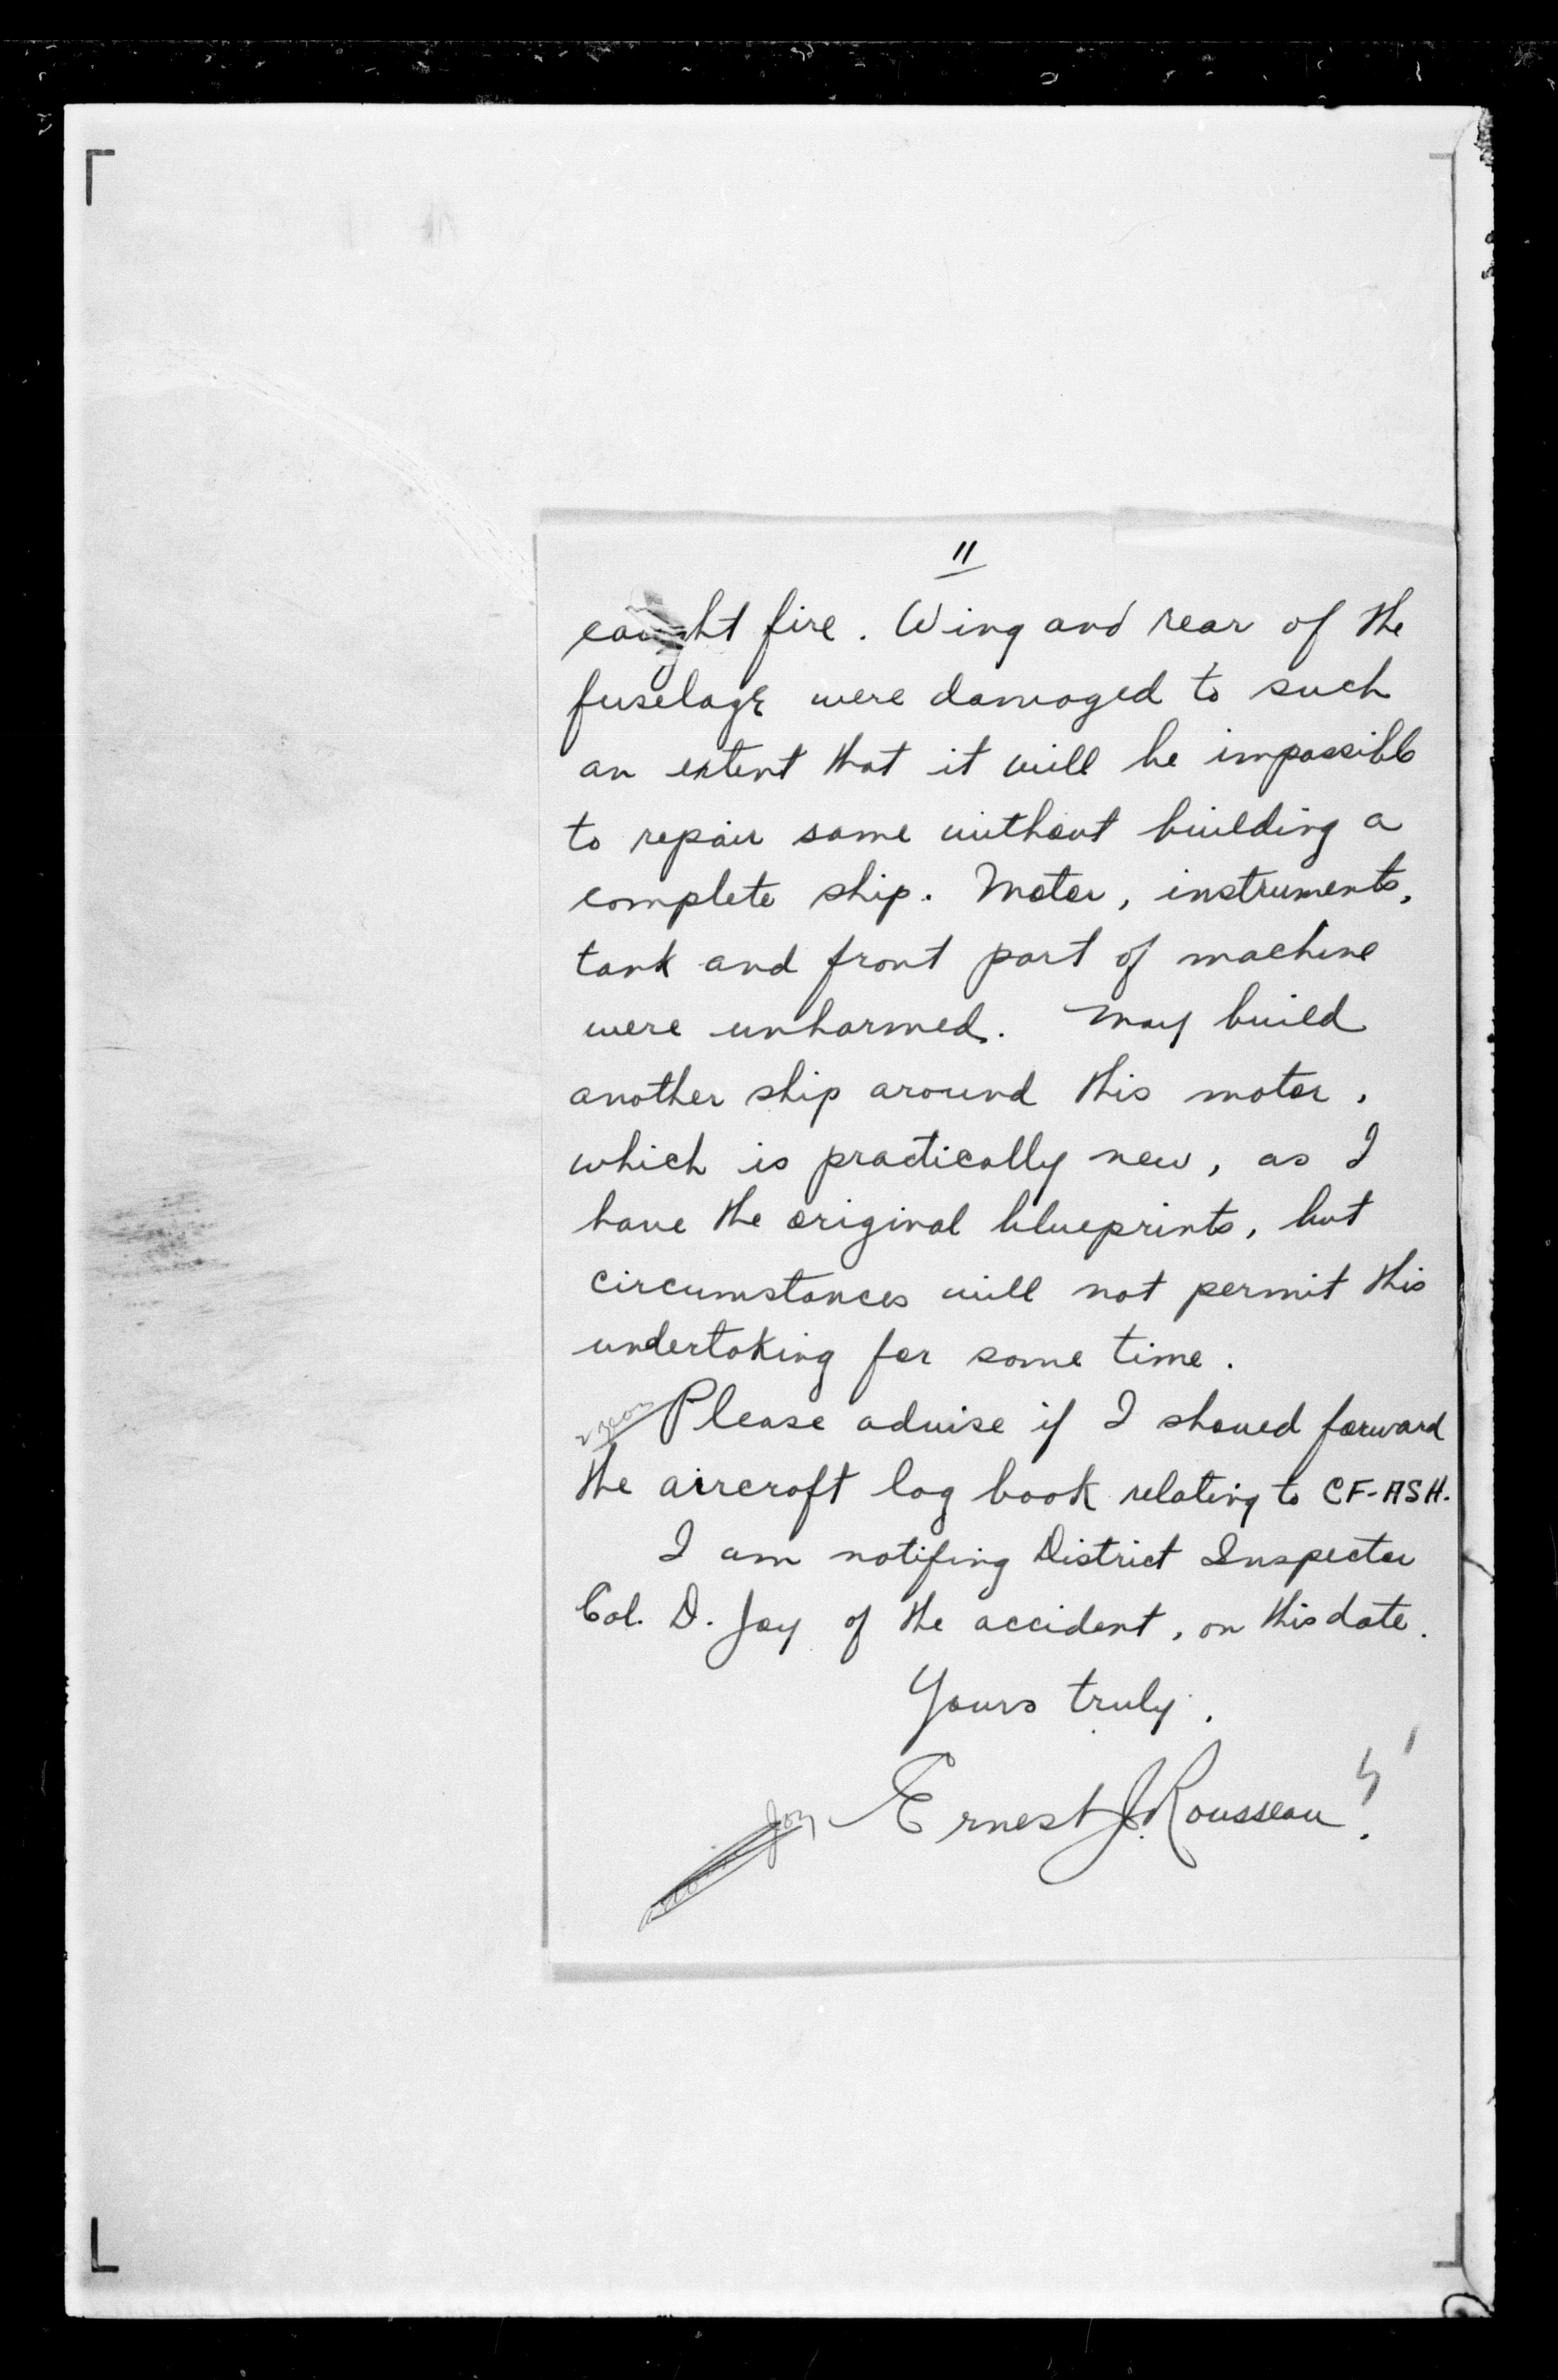 11
caught fire. Wing and rear of the
fuselage were damaged to such
an extent that it will be impossible
to repair same without building a
complete ship. Motor, instruments,
tank and front part of machine
were unharmed. May build
another ship around this motor,
which is practically new, as I
have the original blueprints, but
circumstances will not permit this
undertaking for some time.
Please advise if I should forward
the aircraft log book relating to CF-ASH.
I am notifing District Inspector
Col. D. Joy of the accident, on this date.
Yours truly,
Ernest J. Rousseau.